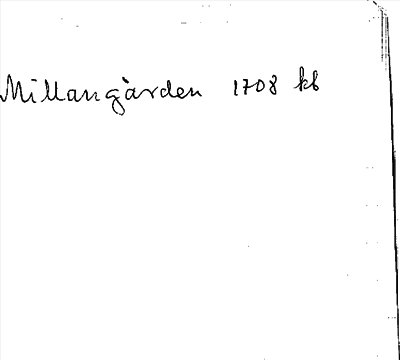 Millangården 1708 kb